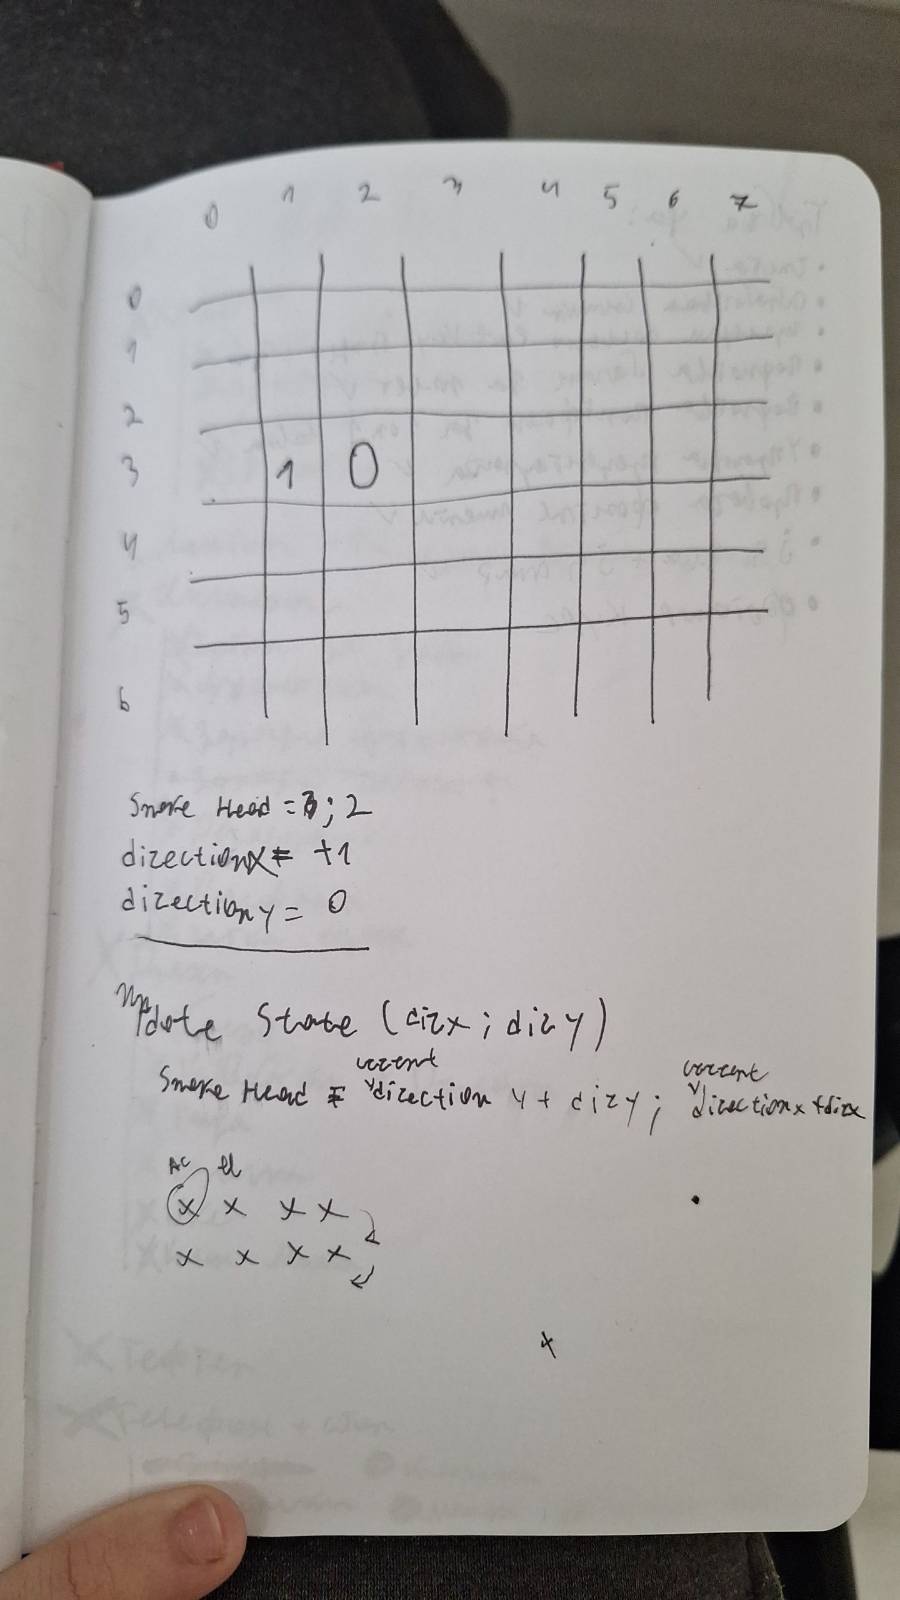 0 1 2 3 4 5 6 7
0
1
2
3 1 0
4
5
6
Snake Head = 3; 2
directionx = +1
directiony = 0
Update State (dirx; diry)
current current
Snake Head = direction y + diry; directionx + dirx
AC
x x x x
x x x x
x